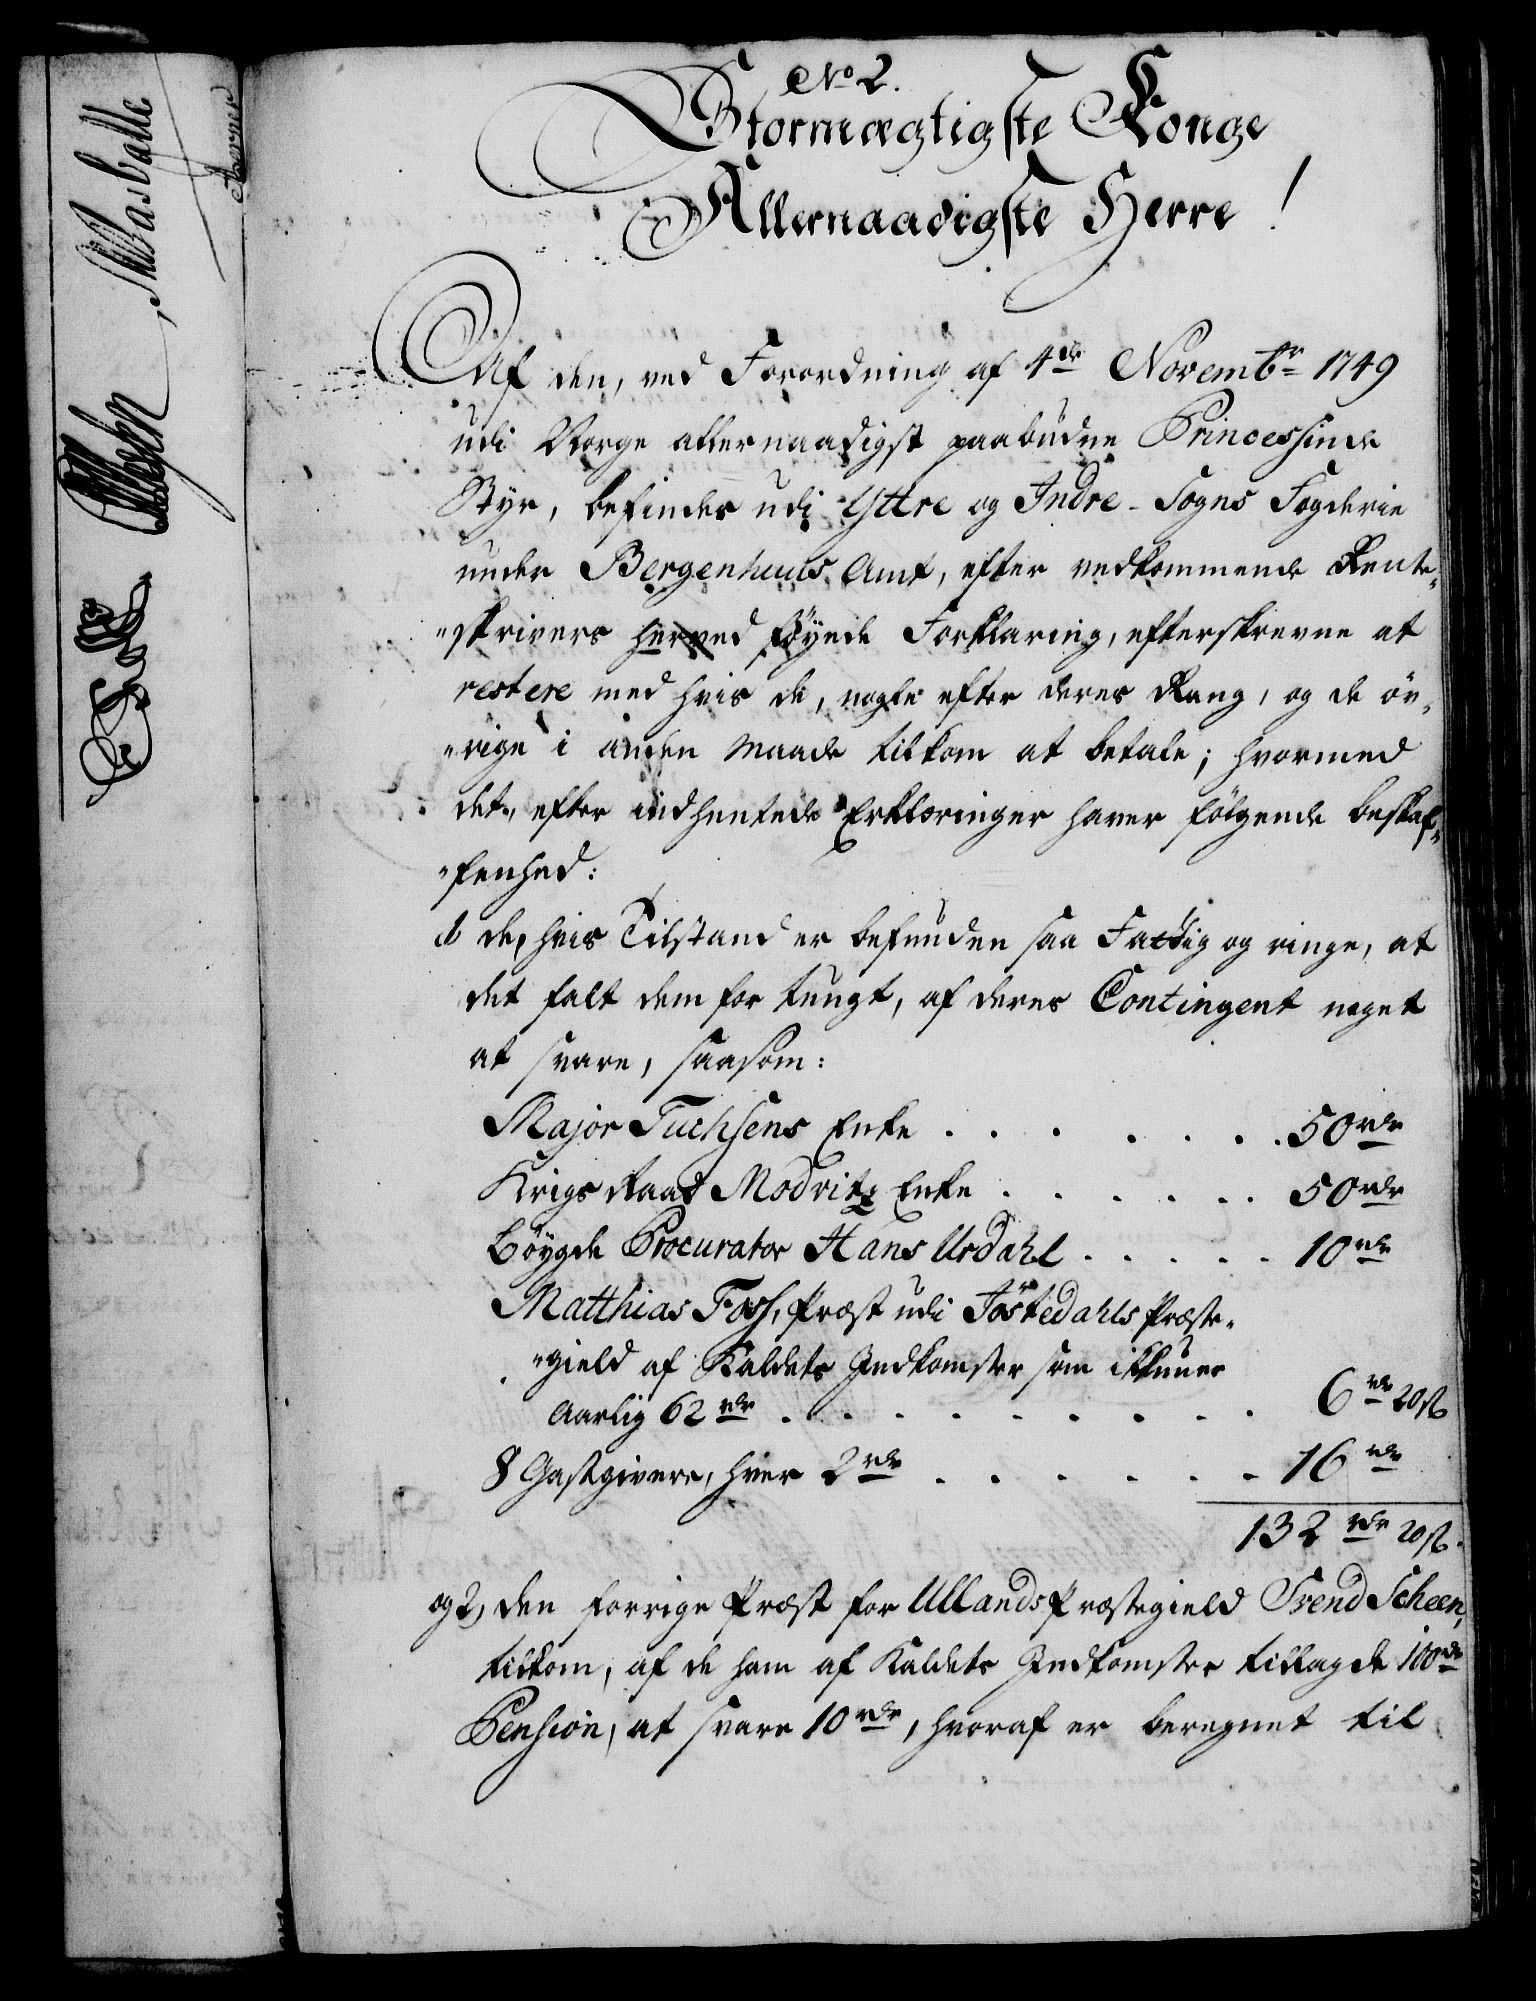 No 2.
Stormægtigste Konge
Allernaadigste Herre!
Af den, ved Forordning af 4de Novembr 1749
udi Norge allernaadigst paabudne Princessinde
Styr, befindes udi Yttre og Indre-Sogns Fogderie
under Bergenhuus Amt, efter vedkommende Rente-
-skrivers herved føyede Forklaring, efterskrevne at
restere med hvis de, nogle efter deres Rang, og de öv-
-rige i anden Maade tilkom at betale; hvormed
det, efter indhentede Erklæringer haver følgende beskaf-
-fenhed:
1 de, hvis Tilstand er befunden saa Fattig og ringe, at
det falt dem for tungt, af deres Contingent noget
at svare, saasom:
Major Tuchsens Enke . . . . . . . 50 rdr
Krigs Raad Modvitz Enke . . . . . . 50 rdr
Böygde Procurator Hans Urdahl . . . . . 10 rdr
Matthias Foss, Præst udi Jöstedahls Præste-
-gield af Kaldets Indkomster som ikkuns
Aarlig 62 rdr . . . . . . . . . 6 rdr 20 ß
8 Gastgivere, hver 2 rdr . . . . . . 16 rdr
132 rdr 20 ß.
og 2, den forrige Præst for Ullands Præstegield Svend Scheen,
tilkom, af de ham af Kaldets Indkomster tillagde 100 rdr
Pension, at svare 10 rdr, hvoraf er beregnet til